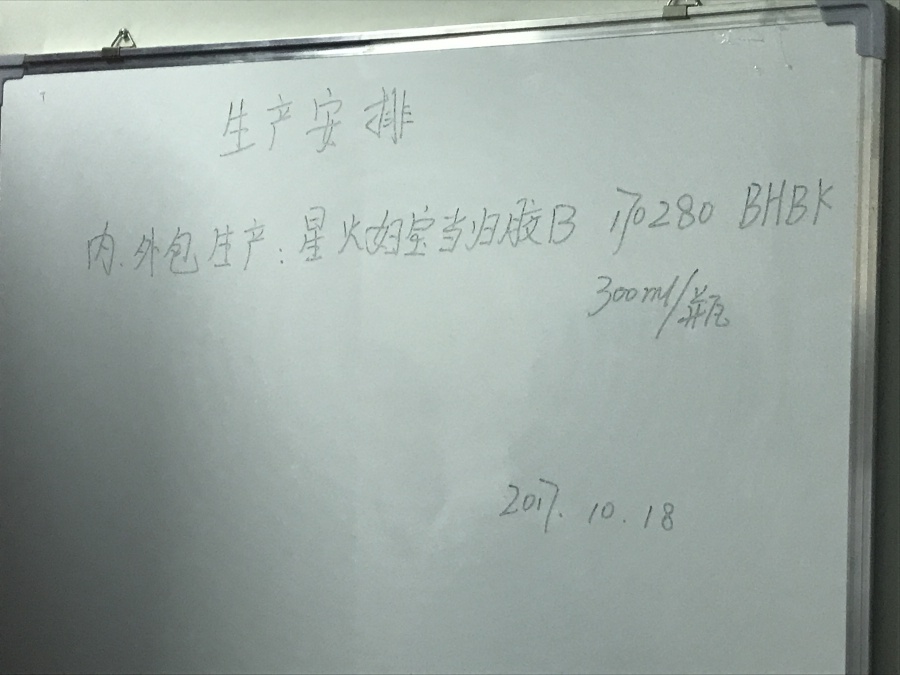 生产安排
内.外包生产:星火妇宝当归胶B 170280 BHBK
300ml/瓶
2017.10.18